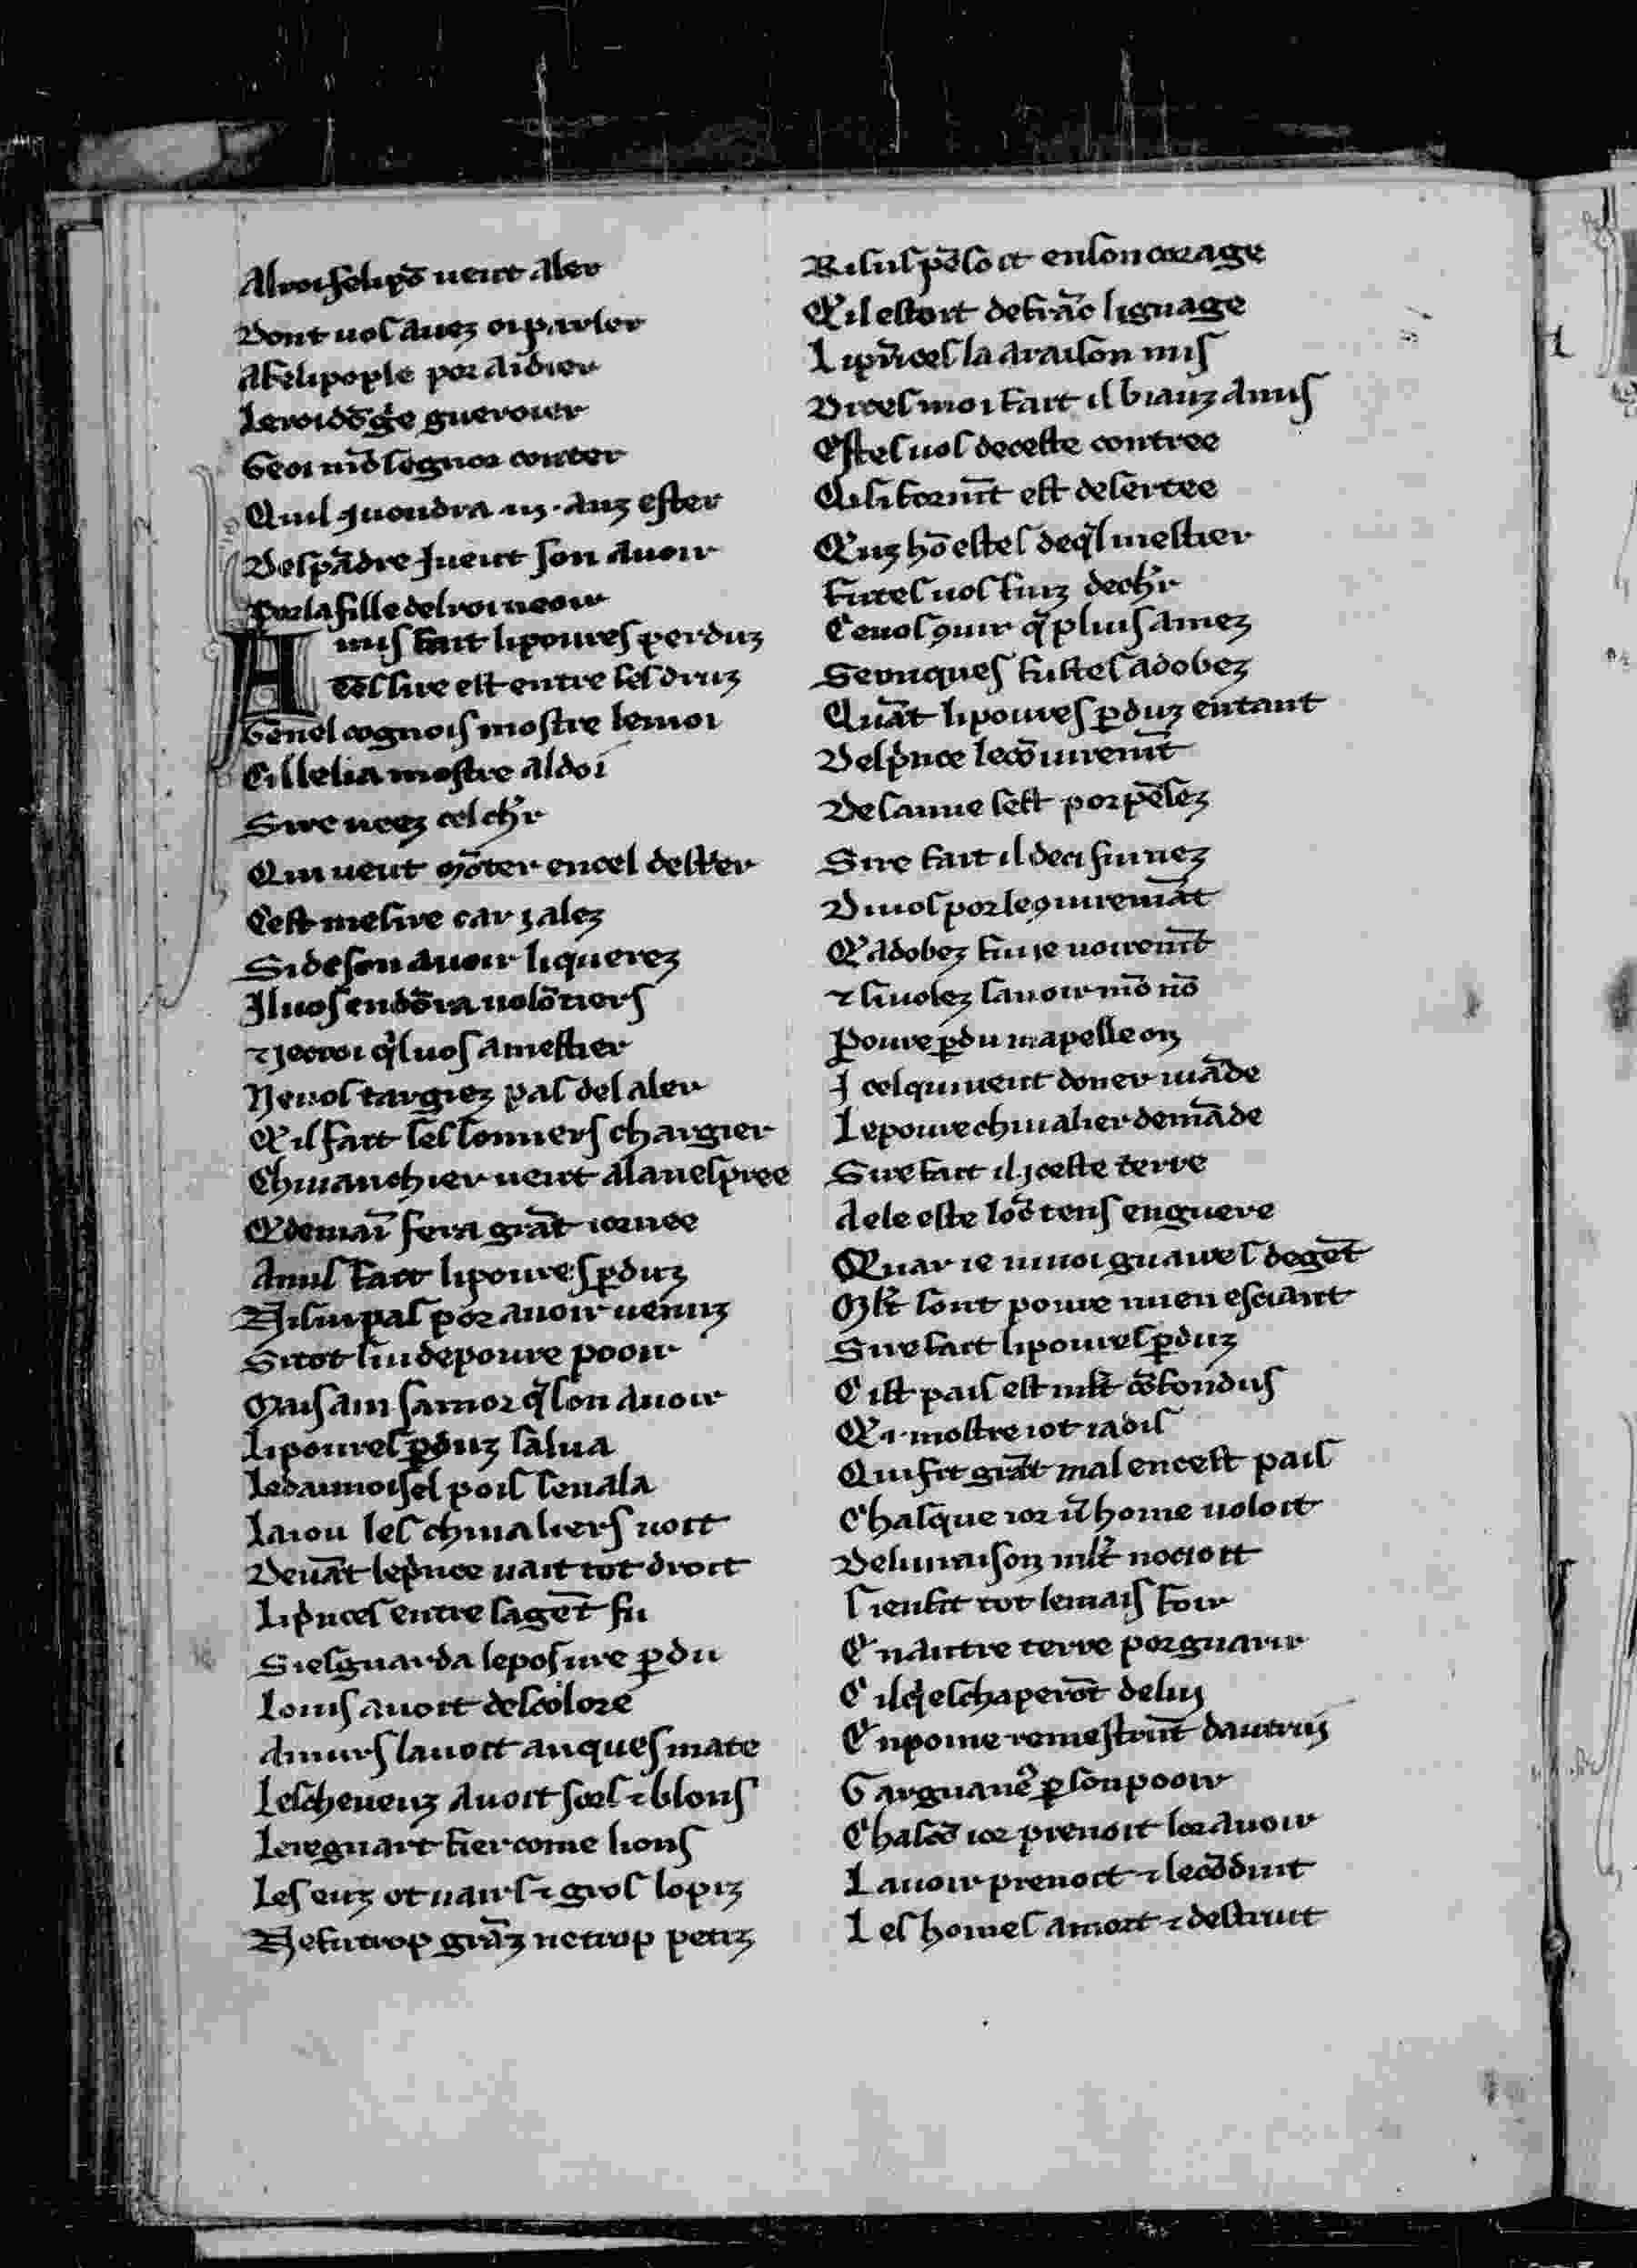 Al roi felipõ ueut aler
Dont uos auez oi parler
A felipople por aidier
Le roi dõgrie guerroier
Ge oi mõ segnor conter
Quil i uoudra .iij. anz ester
Despãdre i ueut son auoir
Por la fille del roi ueoir
Amis fait li poures perduz
Tes sire est entre ses druz
Ge nel cognois mostre le moi
Cil le li a mostre al doi
Sire ueez cel chr
Qui ueut mõter en cel destrier
Cest mesire car i alez
Si de son auoir li querez
Il uos en dõra uolõtiers
⁊ ie croi ql uos a mestier
Ne uos targiez pas del aler
Qil fait ses somiers chargier
Chiuauchier ueut a la uespree
Q demaĩ fera grãt iornee
Amis fait li poures pduz
Ni sui pas por auoir uenuz
Si tot sui de poure pooir
Mais aim samor q son auoir
Li poures pduz salua
Le damoisel pois sen ala
La iou les chiualiers uoit
Deuãt le pince uait tot droit
Li pinces entre sa gẽt fu
Si esguarda le poure pdu
Lo uis auoit descolore
Amurs lauoit auques mate
Les cheueuz auoit sors ⁊ blons
Le reguart fier come lions
Les euz ot uairs ⁊ gros lo piz
Ne fu trop grãz ne trop petiz
Bi sus pẽsoit en son corage
Qil estoit de frãc lignage
Li pinces la a raison mis
Dites moi fait il biauz amis
Estes uos de ceste contree
Qi si formt est desertee
Quz hõ estes de ql mestier
Futes uos fiuz de chr
Ce uos quir q plus amez
Se onques fustes adobez
Quãt li poures pduz entant
Del pince le cõiuremt
De sa uie sest porpẽsez
Sire fait il de ci sui nez
Di uos por le quiremãt
Q adobez fui ie uoiremt
⁊ si uolez sauoir mõ nõ
Poure pdu mapelle on
I cel qui ueut doner mãde
Le poure chiualier demãde
Sire fait il iceste terre
A ele este lõc tens en guere
Quar ie ni uoi guaires de gẽt
Mlt sont poure mien esciant
Sire fait li poures pduz
Cist pais est mlt cõfonduz
Q .i. mostre i ot iadis
Qui fit grãt mal en cest pais
Chasque ior ũ home uoloit
De lui maison mlt nocioit
Sien fit tot lemais foir
En autre terre por guarir
Cil qi eschaperõt de lui
En poine remestrũt dautrui
Garguanẽ p son pooir
Chascũ ior prenoit lor auoir
Lauoir prenoit ⁊ le cõduit
Les homes a mort ⁊ destruit